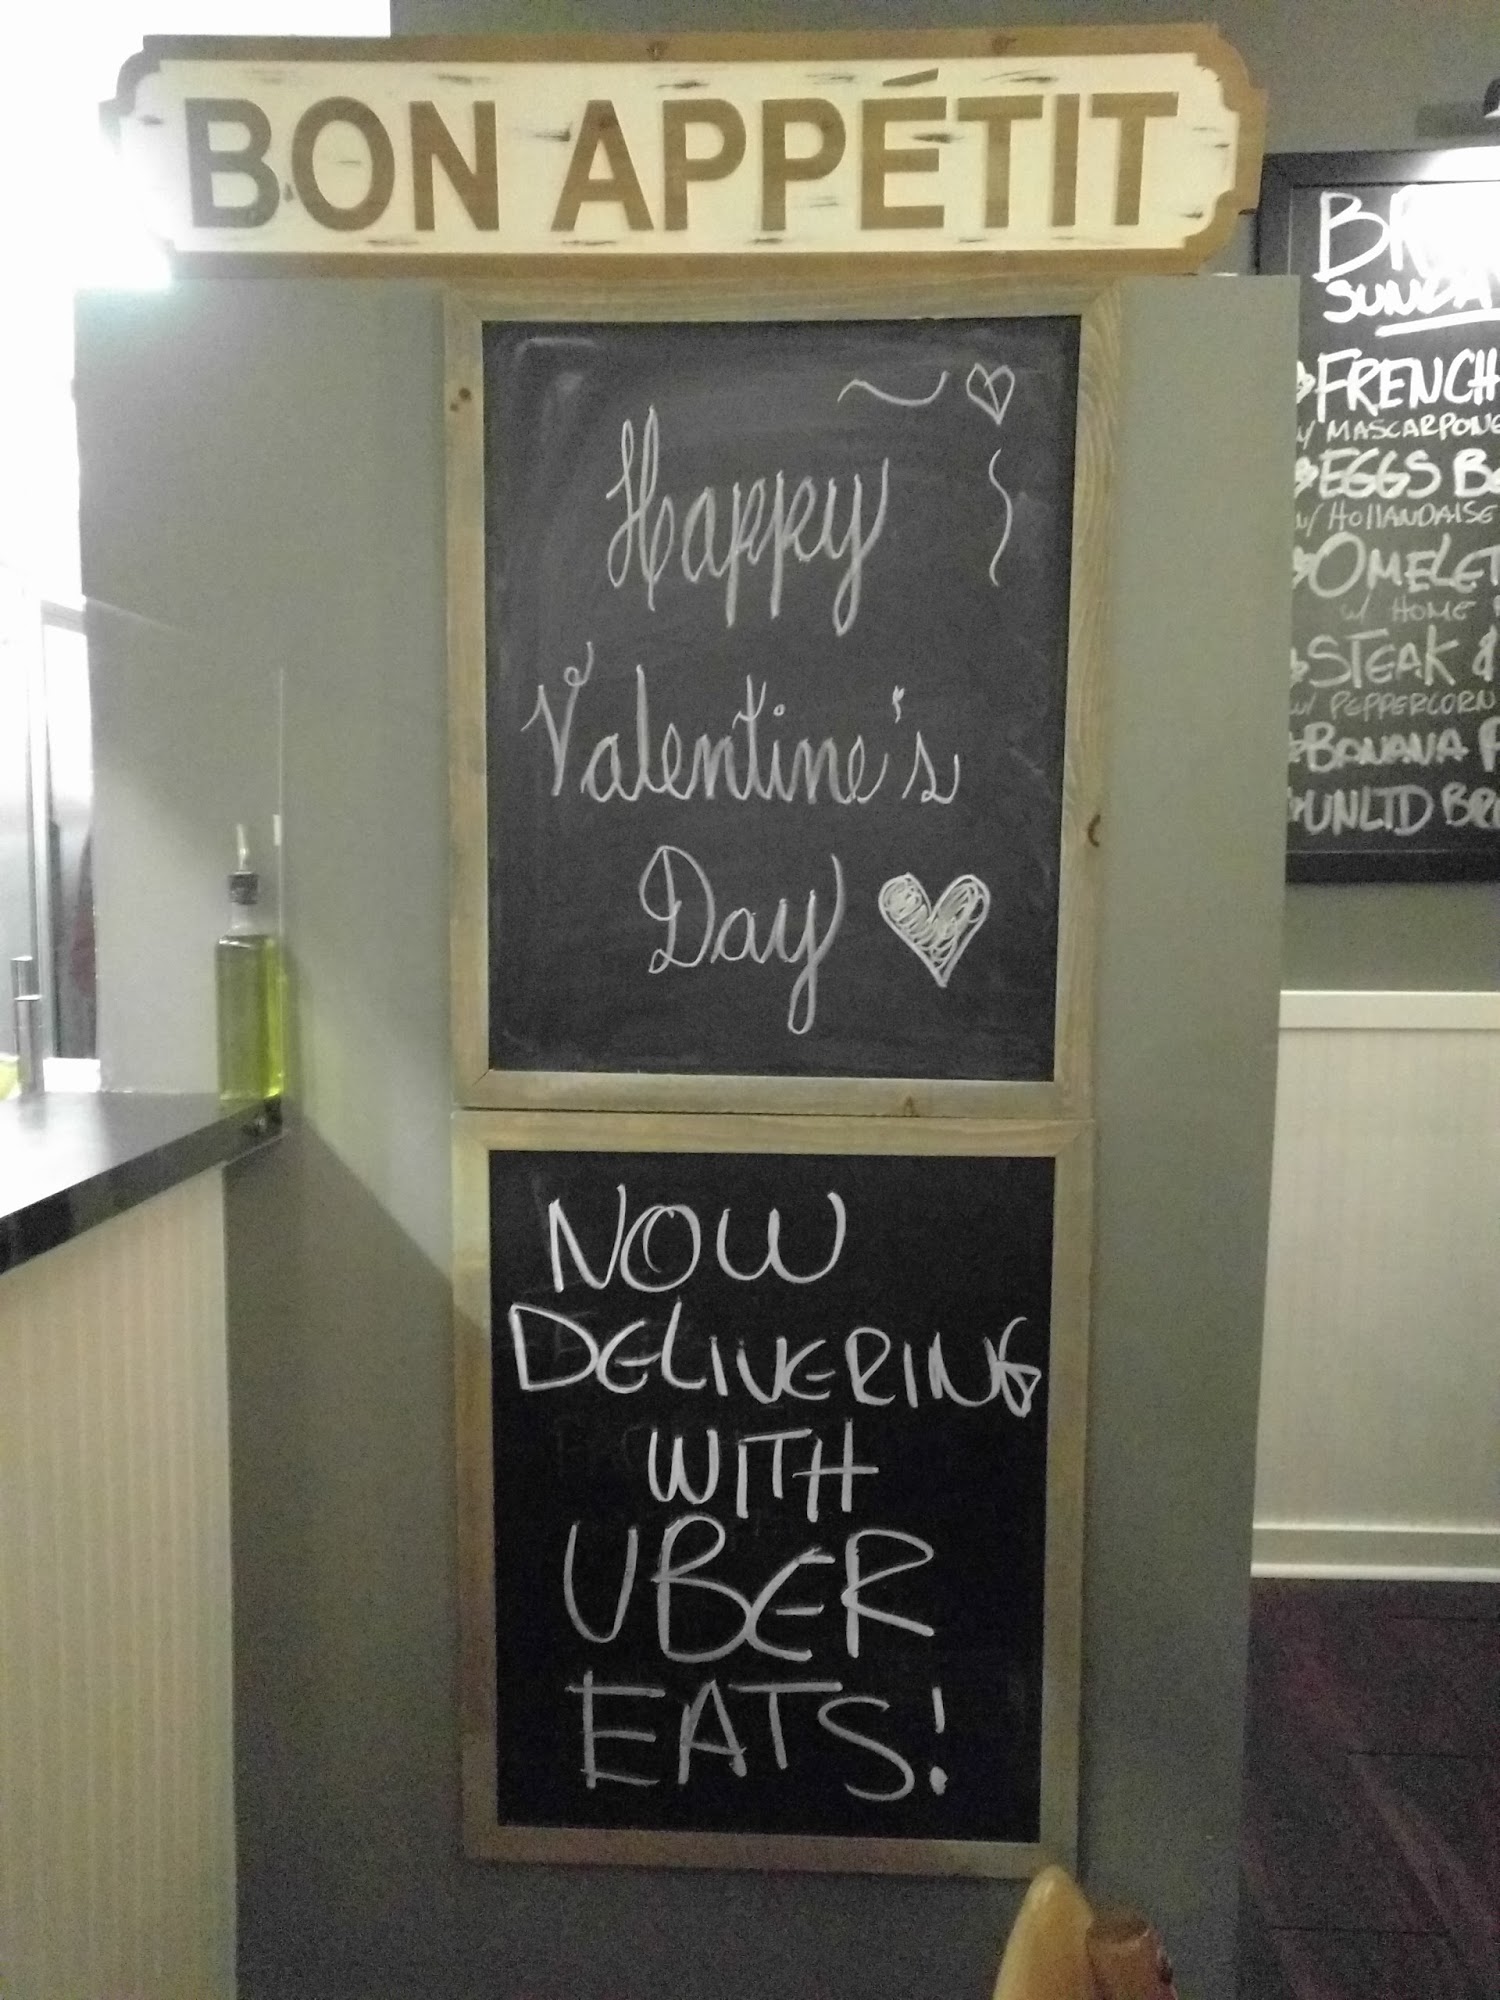 BON APPÉTIT
Happy
Valentine's
Day
NOW
DELIVERING
WITH
UBER
EATS!
FRENCH
w/ MASCARPONE
EGGS
w/ HOLLANDAISE
w/ HOME
STEAK &
w/ PEPPERCORN
BANANA
UNLTD